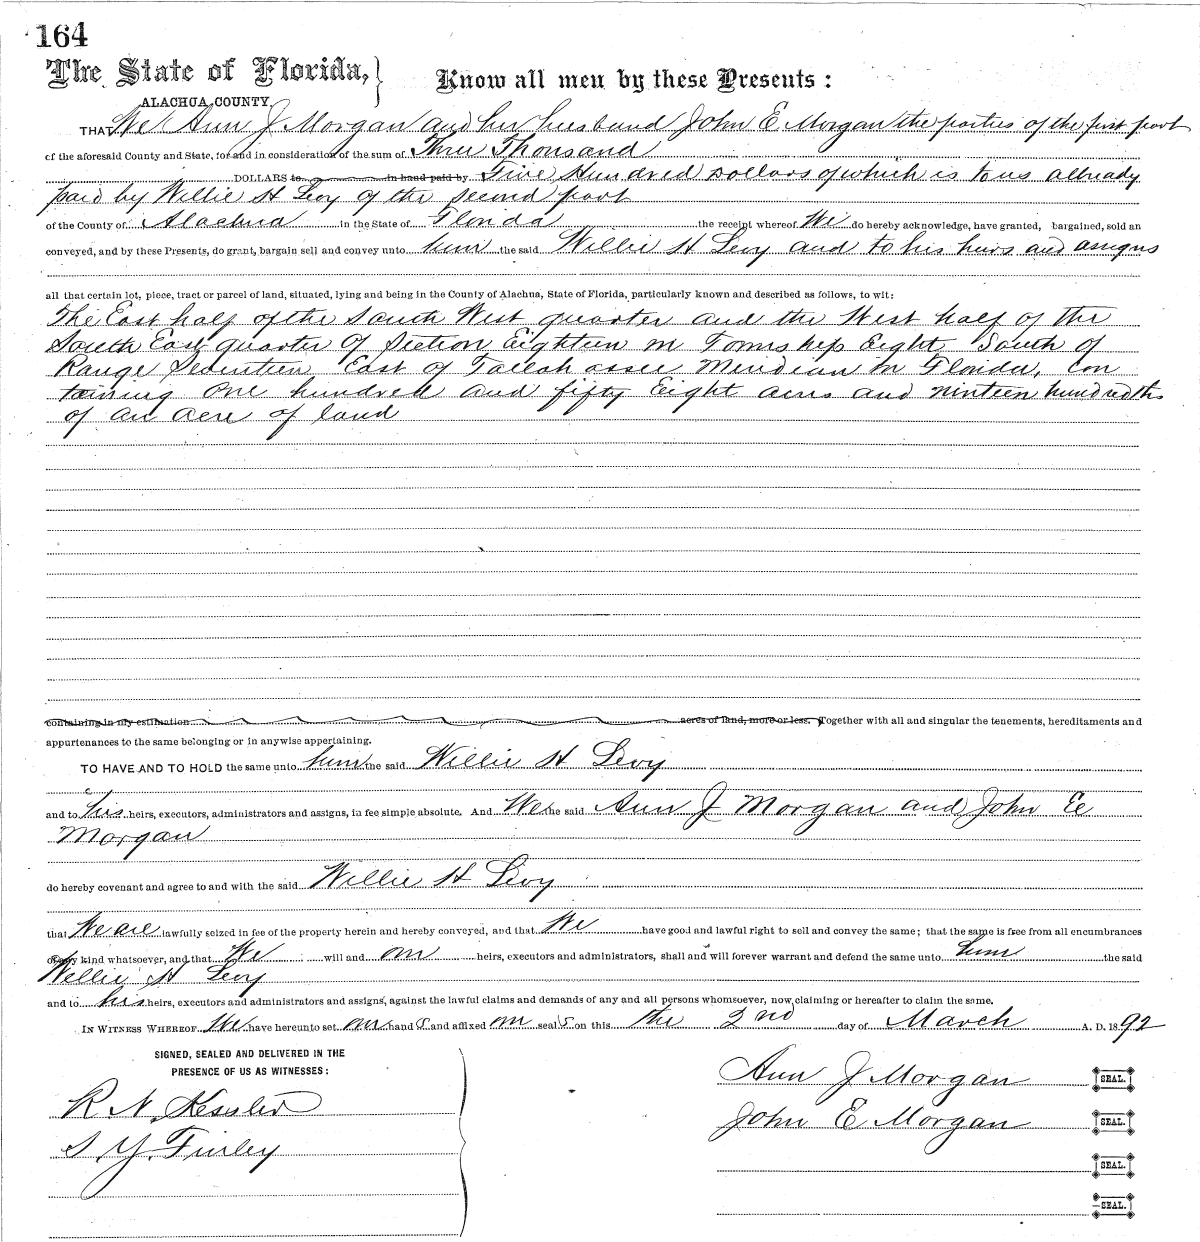 164
The State of Florida, Know all men by these Presents:
ALACHUA COUNTY
THAT We Ann J Morgan and her husband John E Morgan the parties of the first part
of the aforesaid County and State, for and in consideration of the sum of Three Thousand
DOLLARS to in hand paid by Five Hundred Dollars of which is to us already
paid by Willie H Levy of the second part
of the County of Alachua in the State of Florida the receipt whereof We do hereby acknowledge, have granted, bargained, sold an
conveyed, and by these Presents, do grant, bargain sell and convey unto him the said Willie H Levy and to his heirs and assigns
all that certain lot, piece, tract or parcel of land, situated, lying and being in the County of Alachua, State of Florida, particularly known and described as follows, to wit:
The East half of the South West quarter and the West half of the
South East quarter of Section Eighteen in Township Eight South of
Range Seventeen East of Tallahassee Meridian in Florida, Con
taining One hundred and fifty Eight acres and nineteen hundredths
of an acre of land
containing in my estimation acres of land, more or less. Together with all and singular the tenements, hereditaments and
appurtenances to the same belonging or in anywise appertaining.
TO HAVE AND TO HOLD the same unto him the said Willie H Levy
and to his heirs, executors, administrators and assigns, in fee simple absolute. And We the said Ann J Morgan and John E
Morgan
do hereby covenant and agree to and with the said Willie H Levy
that We are lawfully seized in fee of the property herein and hereby conveyed, and that We have good and lawful right to sell and convey the same; that the same is free from all encumbrances
of any kind whatsoever, and that We will and our heirs, executors and administrators, shall and will forever warrant and defend the same unto him the said
Willie H Levy
and to his heirs, executors and administrators and assigns, against the lawful claims and demands of any and all persons whomsoever, now claiming or hereafter to claim the same.
IN WITNESS WHEREOF We have hereunto set our hand s and affixed our seal s on this the 2nd day of March A. D. 1892
SIGNED, SEALED AND DELIVERED IN THE
PRESENCE OF US AS WITNESSES:
Ann J Morgan SEAL.
R. N. Kessler
John E Morgan SEAL.
S. Y. Finley
SEAL.
SEAL.